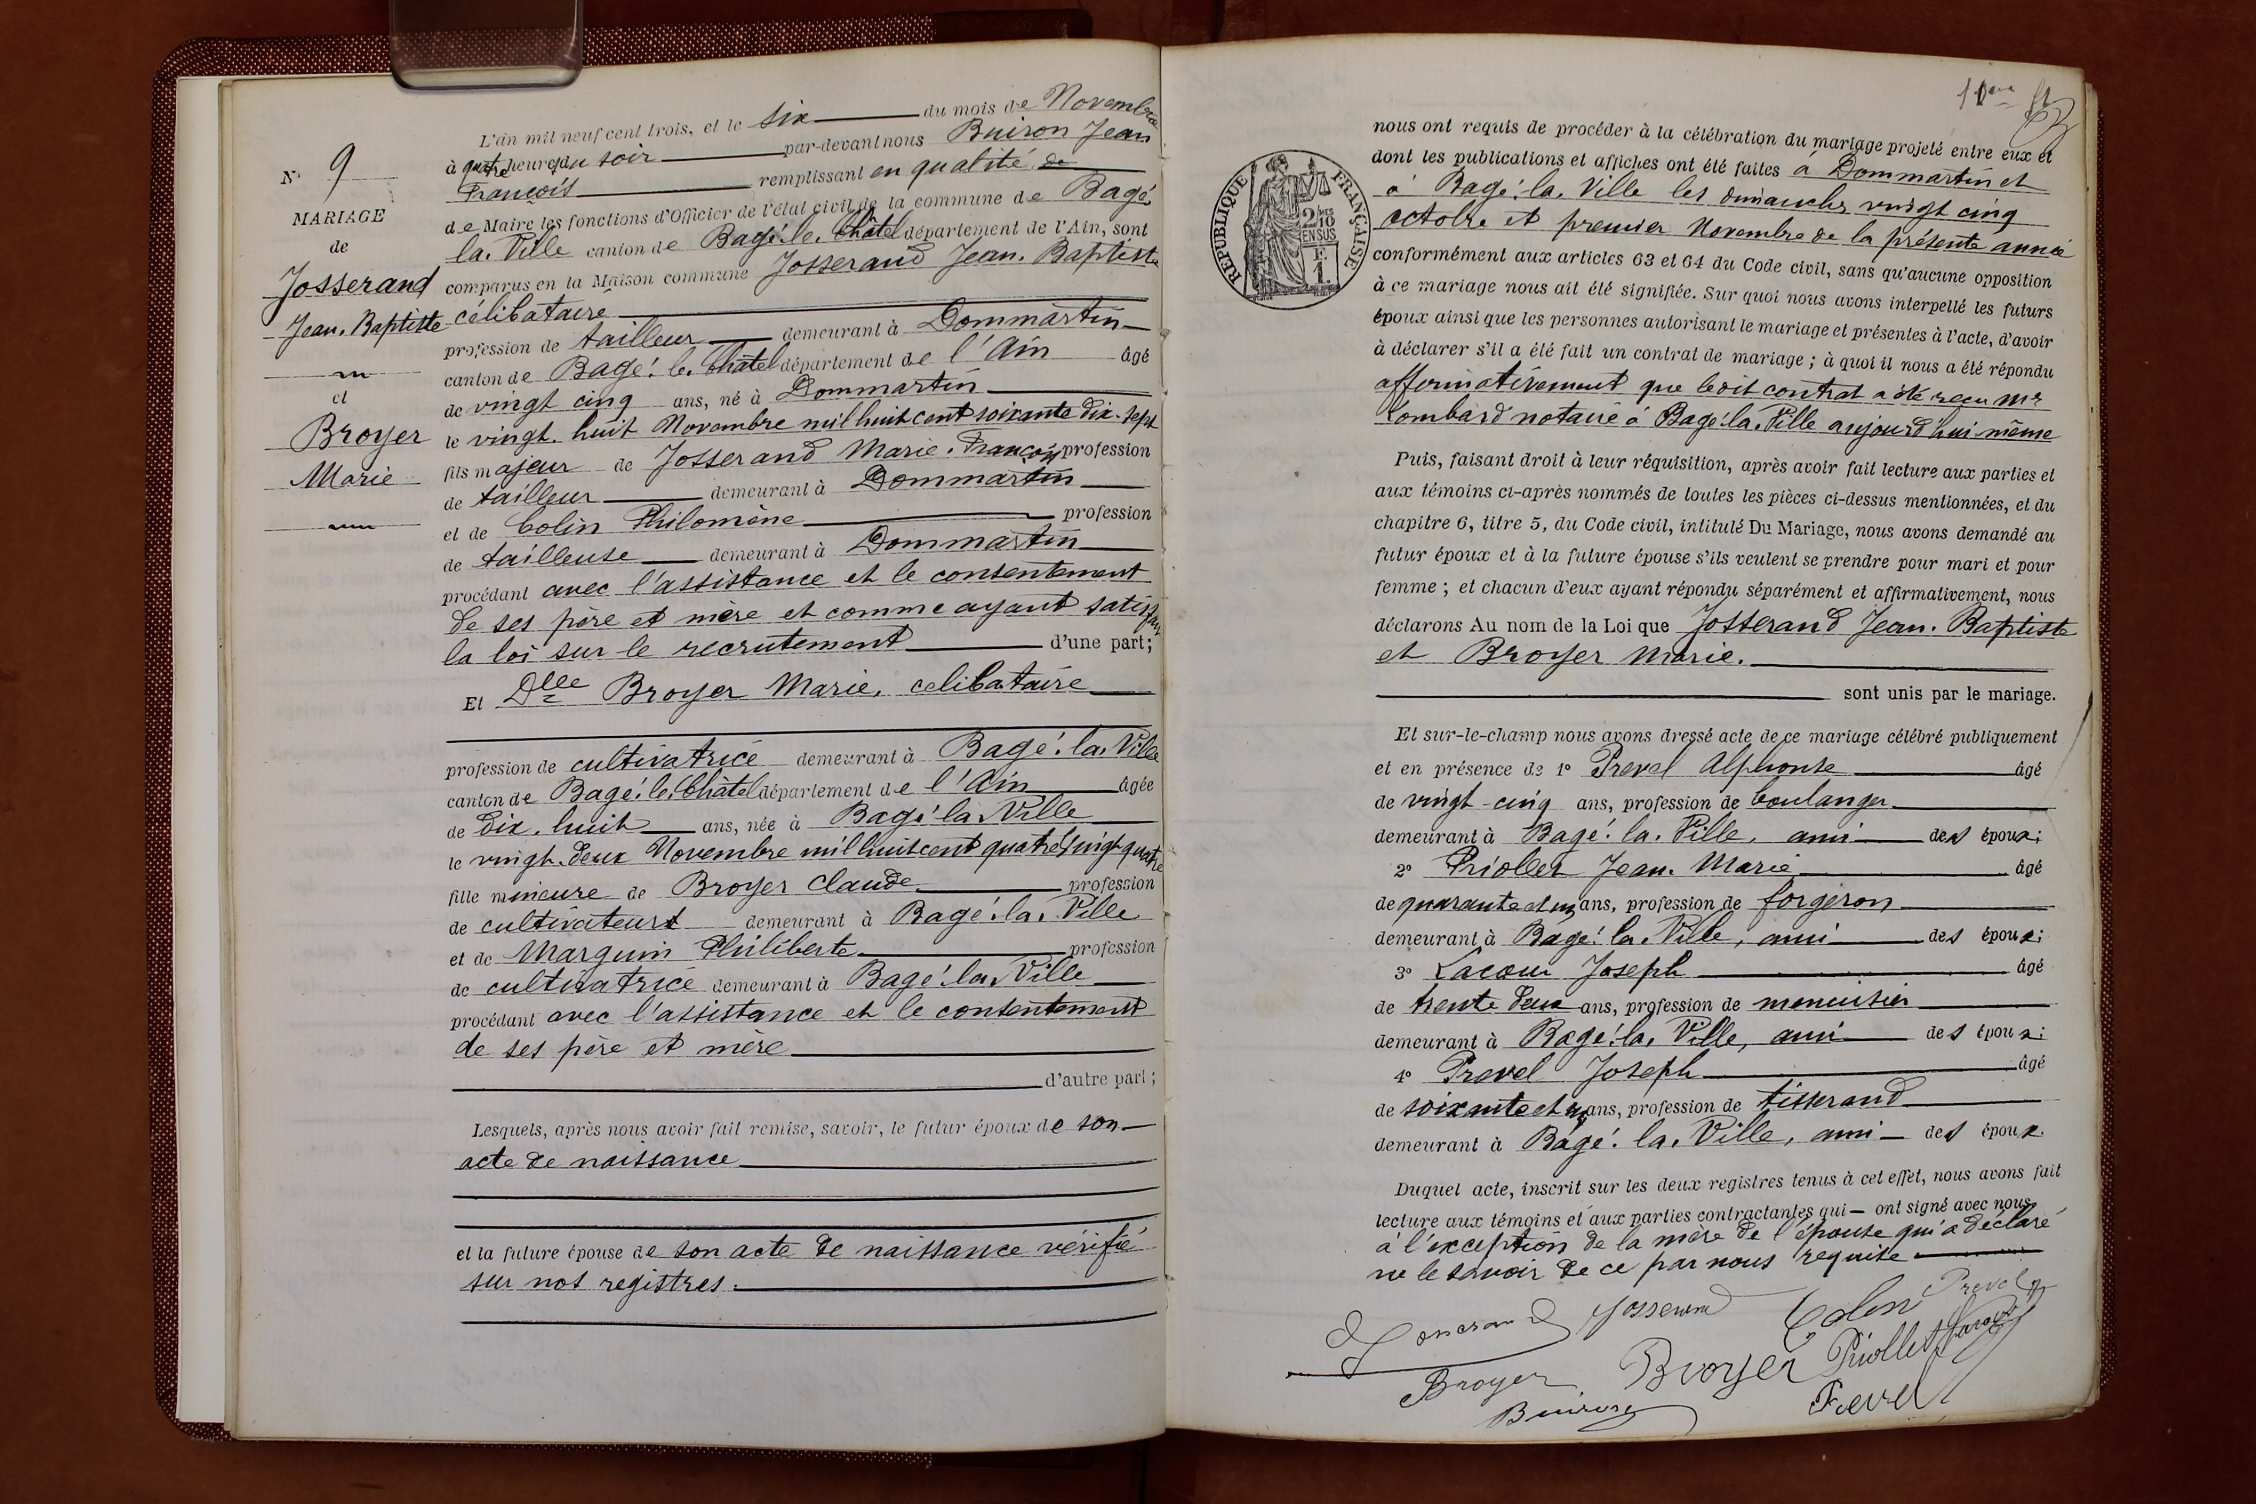 N° 9
MARIAGE
de
Josserand
Jean. Baptiste
et
Broyer
Marie
L'an mil neuf cent trois, et le six du mois de Novembre
à quatre heures du soir par-devant nous Buiron Jean
François remplissant en qualité de
de Maire les fonctions d'Officier de l'état civil de la commune de Bagé
la. Ville canton de Bagé. le. Châtel département de l'Ain, sont
comparus en la Maison commune Josserand Jean. Baptiste
célibataire
profession de tailleur demeurant à Dommartin
canton de Bagé. le. Châtel département de l'Ain âgé
de vingt cinq ans, né à Dommartin
le vingt. huit Novembre mil huit cent soixante dix. sept
fils majeur de Josserand Marie. François profession
de tailleur demeurant à Dommartin
et de Colin Philomène profession
de tailleuse demeurant à Dommartin
procédant avec l'assistance et le consentement
de ses père et mère et comme ayant satisfait
la loi sur le recrutement d'une part;
Et Dlle Broyer Marie, celibataire
profession de cultivatrice demeurant à Bagé. la. Ville
canton de Bagé. le. Châtel département de l'Ain âgée
de dix. huit ans, née à Bagé la Ville
le vingt. deux Novembre mil huit cent quatre vingt quatre
fille mineure de Broyer Claude profession
de cultivateur demeurant à Bagé. la. Ville
et de Marguin Philiberte profession
de cultivatrice demeurant à Bagé. la. Ville
procédant avec l'assistance et le consentement
de ses père et mère
d'autre part;
Lesquels, après nous avoir fait remise, savoir, le futur époux de son
acte de naissance
et la future épouse de son acte de naissance vérifié
sur nos registres.
nous ont requis de procéder à la célébration du mariage projeté entre eux et
dont les publications et affiches ont été faites à Dommartin et
à Bagé. la. Ville les dimanches vingt cinq
octobre et premier Novembre de la présente année
conformément aux articles 63 et 64 du Code civil, sans qu'aucune opposition
à ce mariage nous ait été signifiée. Sur quoi nous avons interpellé les futurs
époux ainsi que les personnes autorisant le mariage et présentes à l'acte, d'avoir
à déclarer s'il a été fait un contrat de mariage; à quoi il nous a été répondu
affirmativement que ledit contrat a été reçu Mr
Lombard notaire à Bagé. la. Ville aujourd'hui même
RÉPUBLIQUE FRANÇAISE
2/10 EN SUS
F. 1.
Puis, faisant droit à leur réquisition, après avoir fait lecture aux parties et
aux témoins ci-après nommés de toutes les pièces ci-dessus mentionnées, et du
chapitre 6, titre 5, du Code civil, intitulé Du Mariage, nous avons demandé au
futur époux et à la future épouse s'ils veulent se prendre pour mari et pour
femme; et chacun d'eux ayant répondu séparément et affirmativement, nous
déclarons Au nom de la Loi que Josserand Jean. Baptiste
et Broyer Marie.
sont unis par le mariage.
Et sur-le-champ nous avons dressé acte de ce mariage célébré publiquement
et en présence de 1° Prevel Alphonse âgé
de vingt-cinq ans, profession de boulanger
demeurant à Bagé. la. Ville, ami des époux;
2° Priollet Jean. Marie âgé
de quarante et un ans, profession de forgeron
demeurant à Bagé. la. Ville, ami des époux;
3° Lacour Joseph âgé
de trente deux ans, profession de menuisier
demeurant à Bagé. la. Ville, ami des époux;
4° Prevel Joseph âgé
de soixante et un ans, profession de tisserand
demeurant à Bagé. la. Ville, ami des époux.
Duquel acte, inscrit sur les deux registres tenus à cet effet, nous avons fait
lecture aux témoins et aux parties contractantes qui ont signé avec nous
à l'exception de la mère de l'épouse qui a déclaré
ne le savoir de ce par nous requise
Josserand Josserand Colin Prevel
Broyer Broyer Priollet
Buiron Prevel